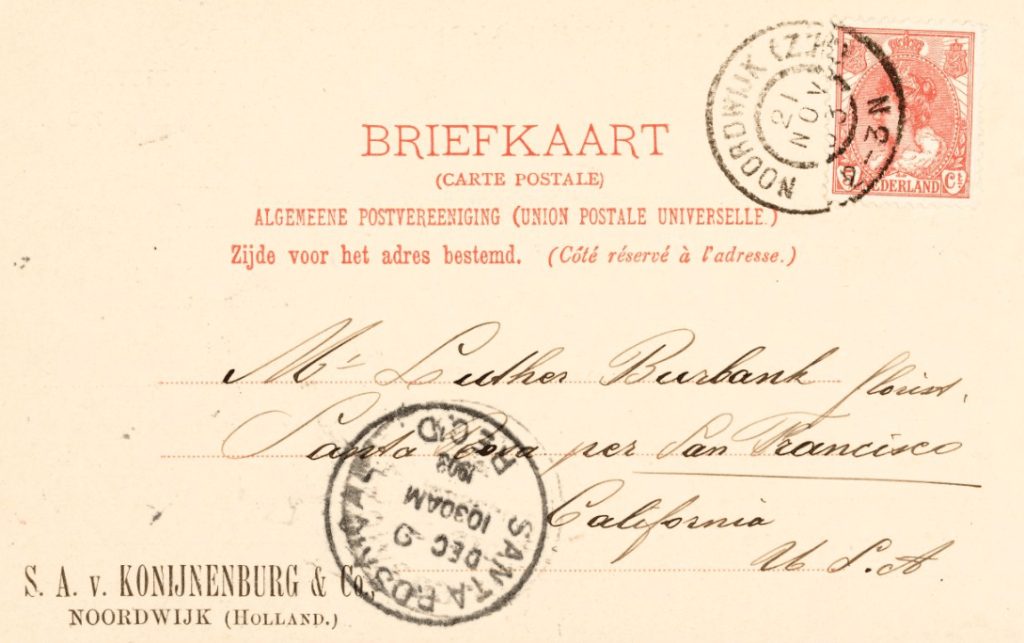 BRIEFKAART
(CARTE POSTALE)
ALGEMEENE POSTVEREENIGING (UNION POSTALE UNIVERSELLE.)
Zijde voor het adres bestemd. (Côté réservé à l'adresse.)
NOORDWIJK (Z.H.)
21
NOV
03
8-2 N
NEDERLAND
Mr Luther Burbank florist,
Santa Rosa per San Francisco
California
U S. A.
SANTA ROSA
DEC 9
1030AM
1903
REC'D.
S. A. v. KONIJNENBURG & Co.,
NOORDWIJK (HOLLAND.)